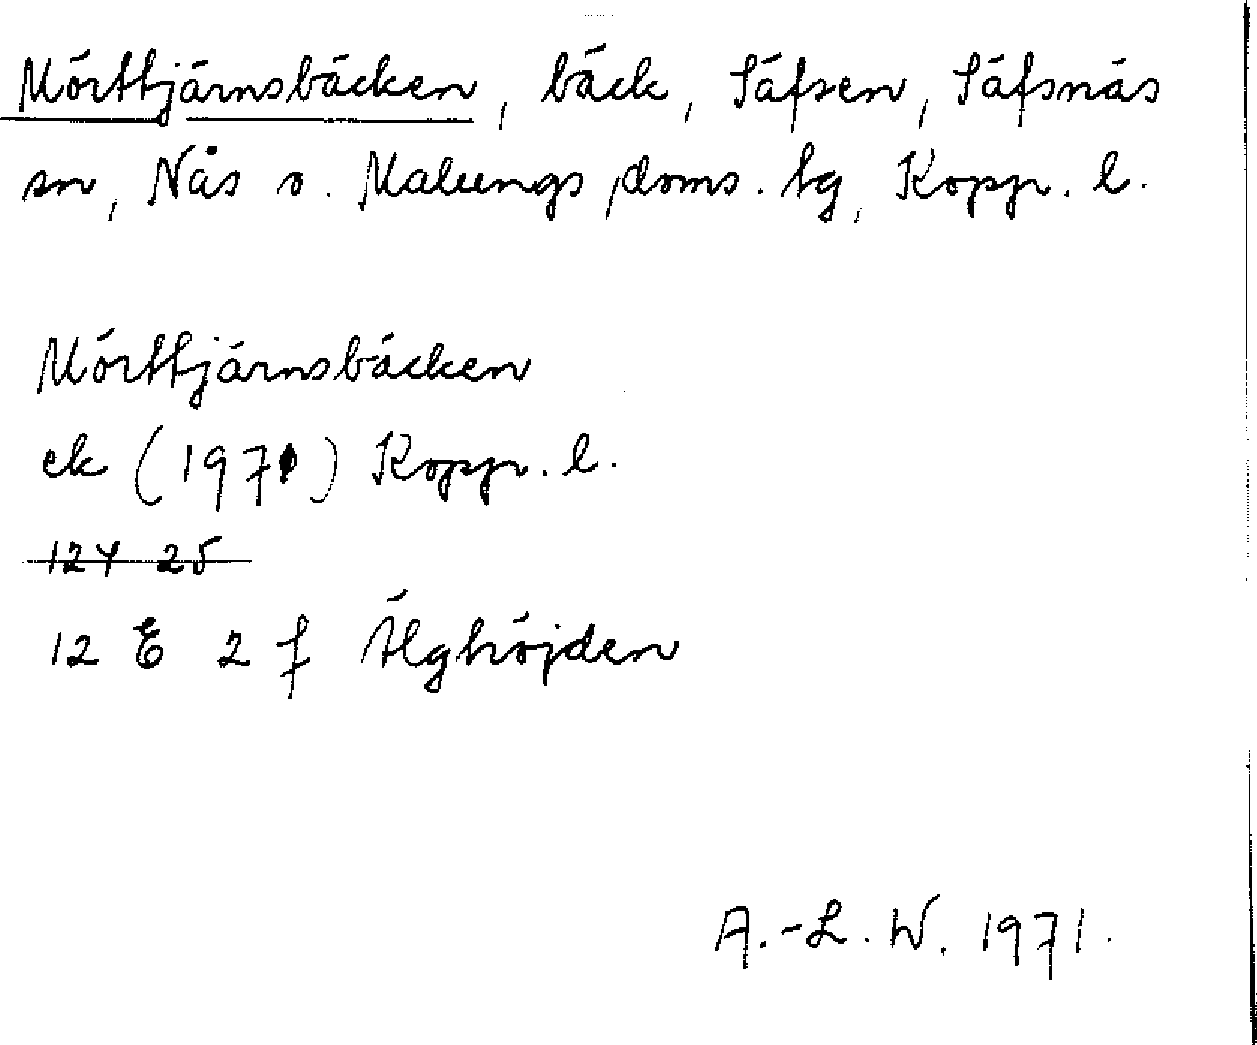 Mörttjärnsbäcken, bäck, Säfsen, Säfsnäs
sn, Nås o. Malungs, doms. tg, Kopp. l.
Mörttjärnsbäcken
ek (1971) Kopp. l.
124 25
12 E 2 f Älghöjden
A.-L. W. 1971.